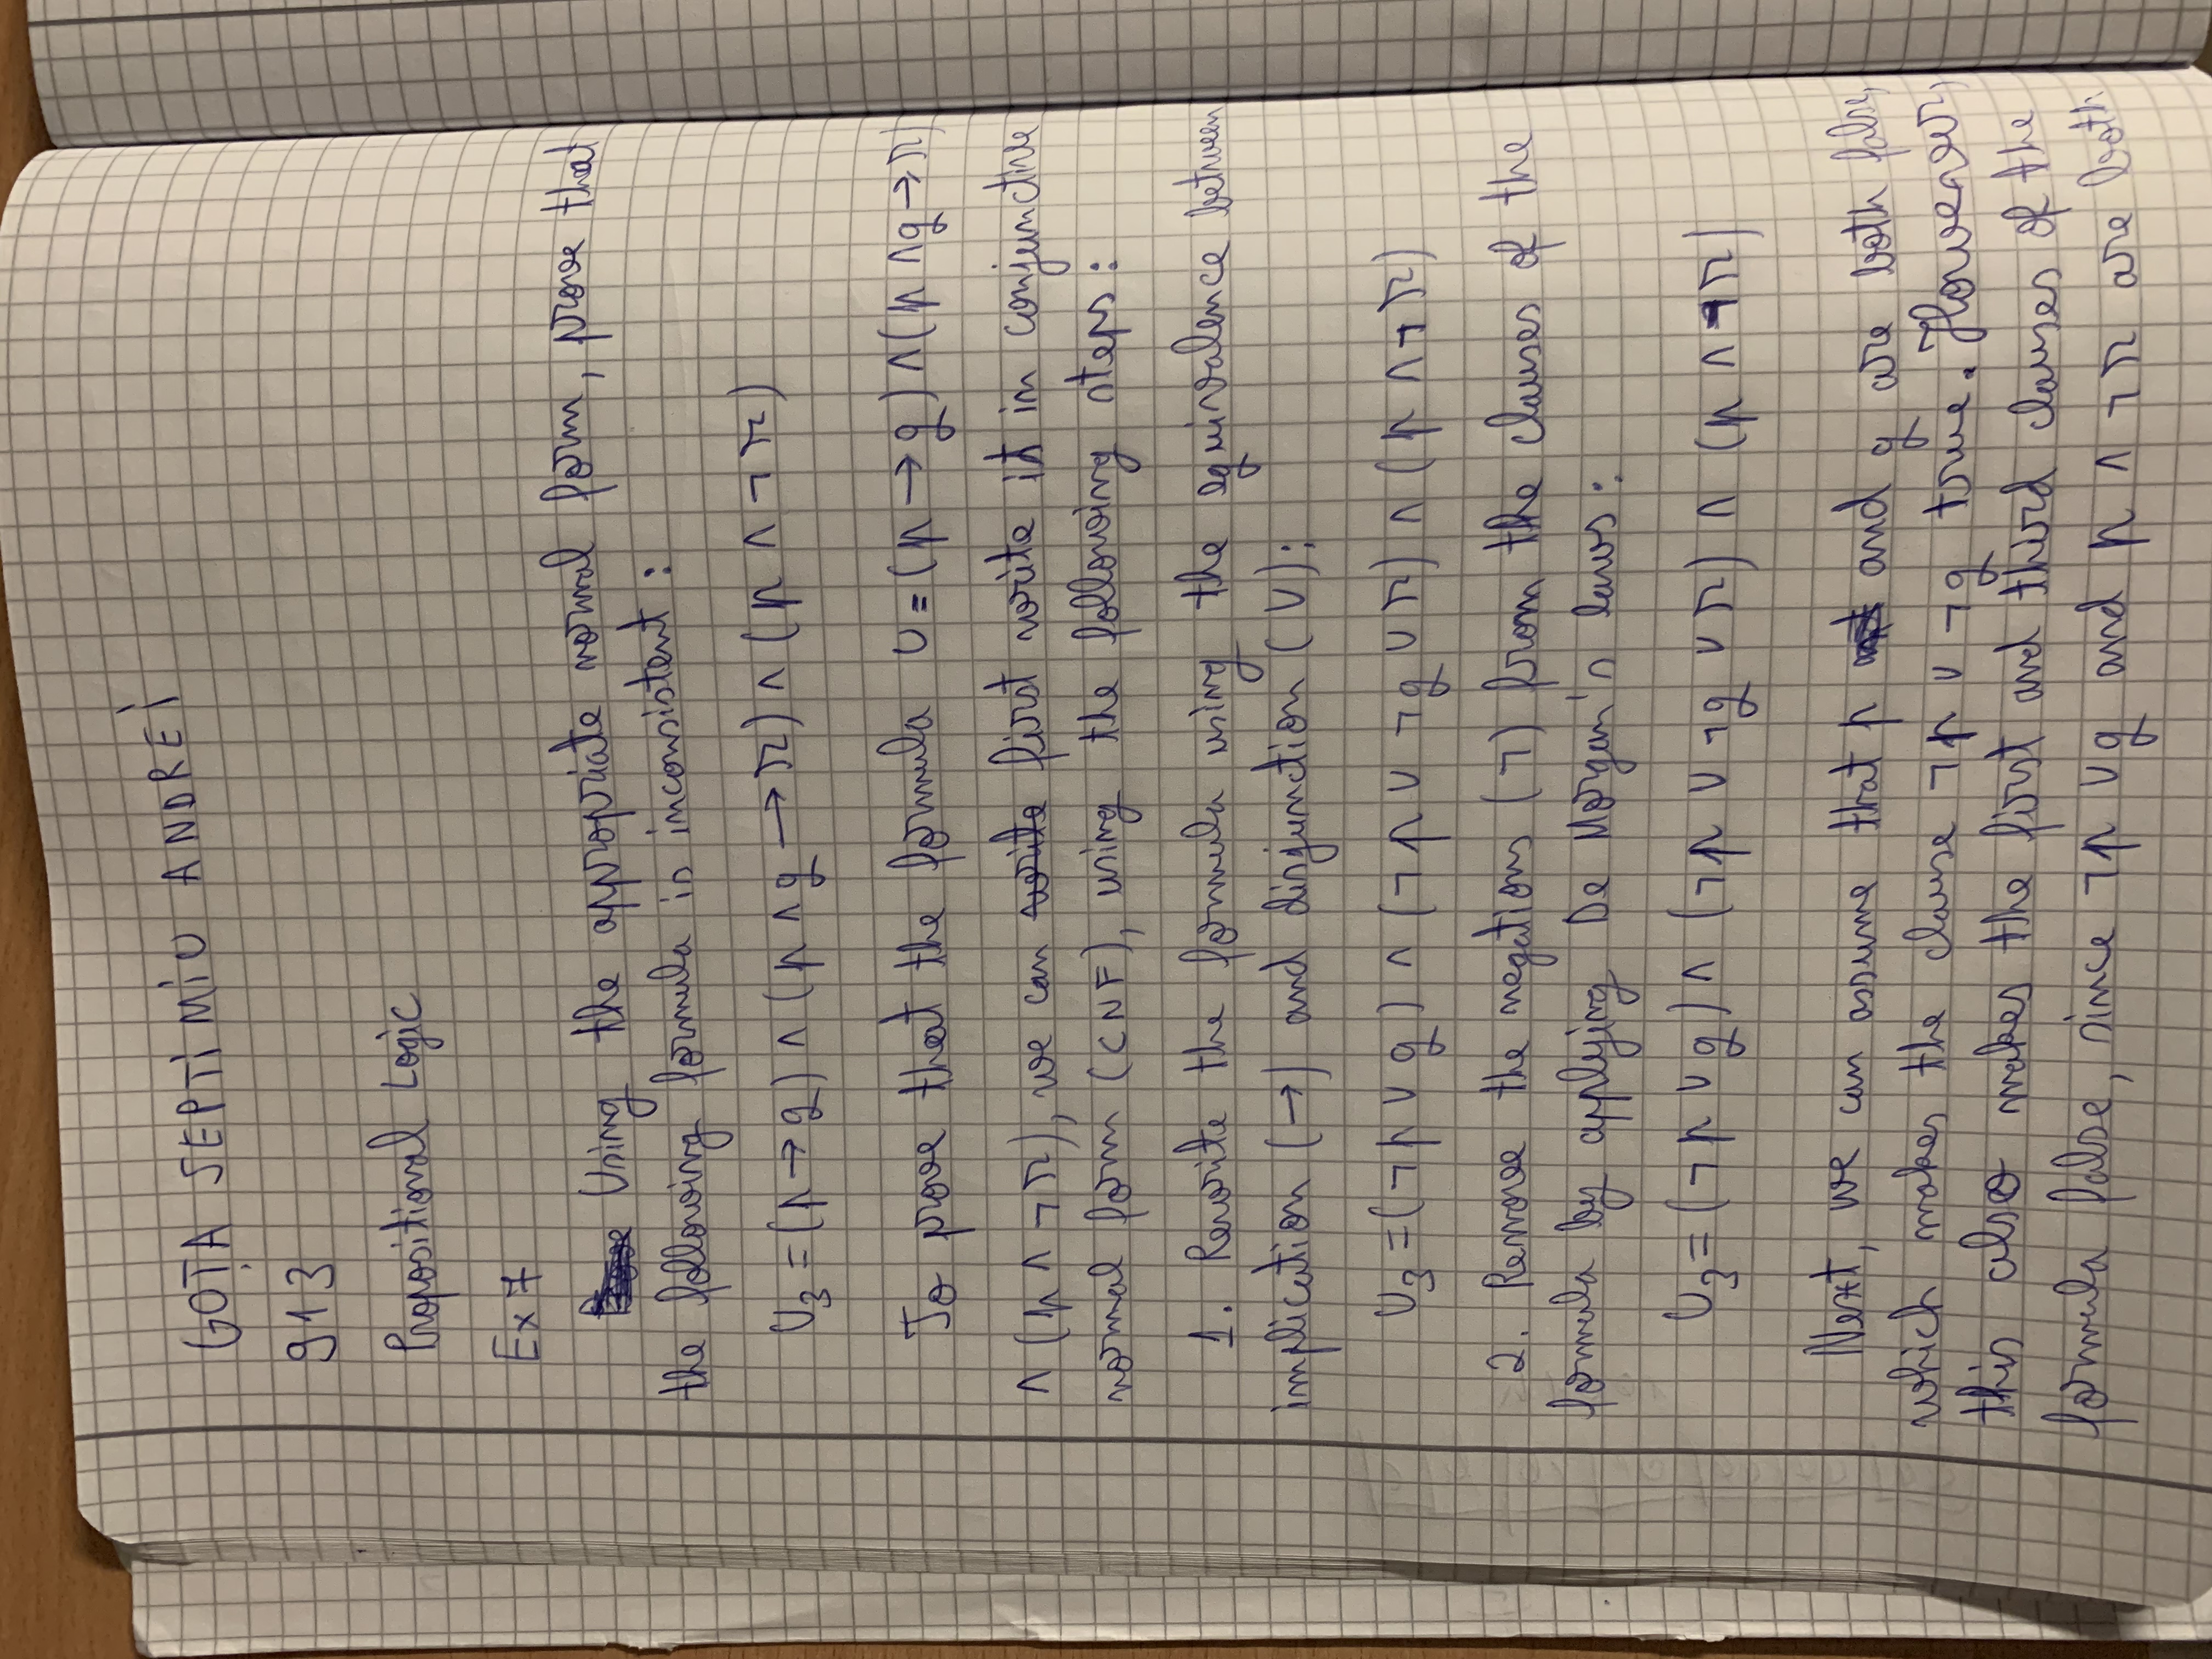 GOȚA SEPTIMIU ANDREI
913
Propositional Logic
Ex 7
Using the appropriate normal form, prove that
the following formula is inconsistent:
U₃ = (p → q) ∧ (p ∧ q → r) ∧ (p ∧ ¬r)
To prove that the formula U = (p → q) ∧ (p ∧ q → r)
∧ (p ∧ ¬r), we can write first write it in conjunctive
normal form (CNF), using the following steps:
1. Rewrite the formula using the equivalence between
implication (→) and disjunction (∨):
U₃ = (¬p ∨ q) ∧ (¬p ∨ ¬q ∨ r) ∧ (p ∧ ¬r)
2. Remove the negations (¬) from the clauses of the
formula by applying De Morgan's laws:
U₃ = (¬p ∨ q) ∧ (¬p ∨ ¬q ∨ r) ∧ (p ∧ ¬r)
Next, we can assume that p and q are both false,
which makes the clause ¬p ∨ ¬q true. However,
this also makes the first and third clauses of the
formula false, since ¬p ∨ q and p ∧ ¬r are both